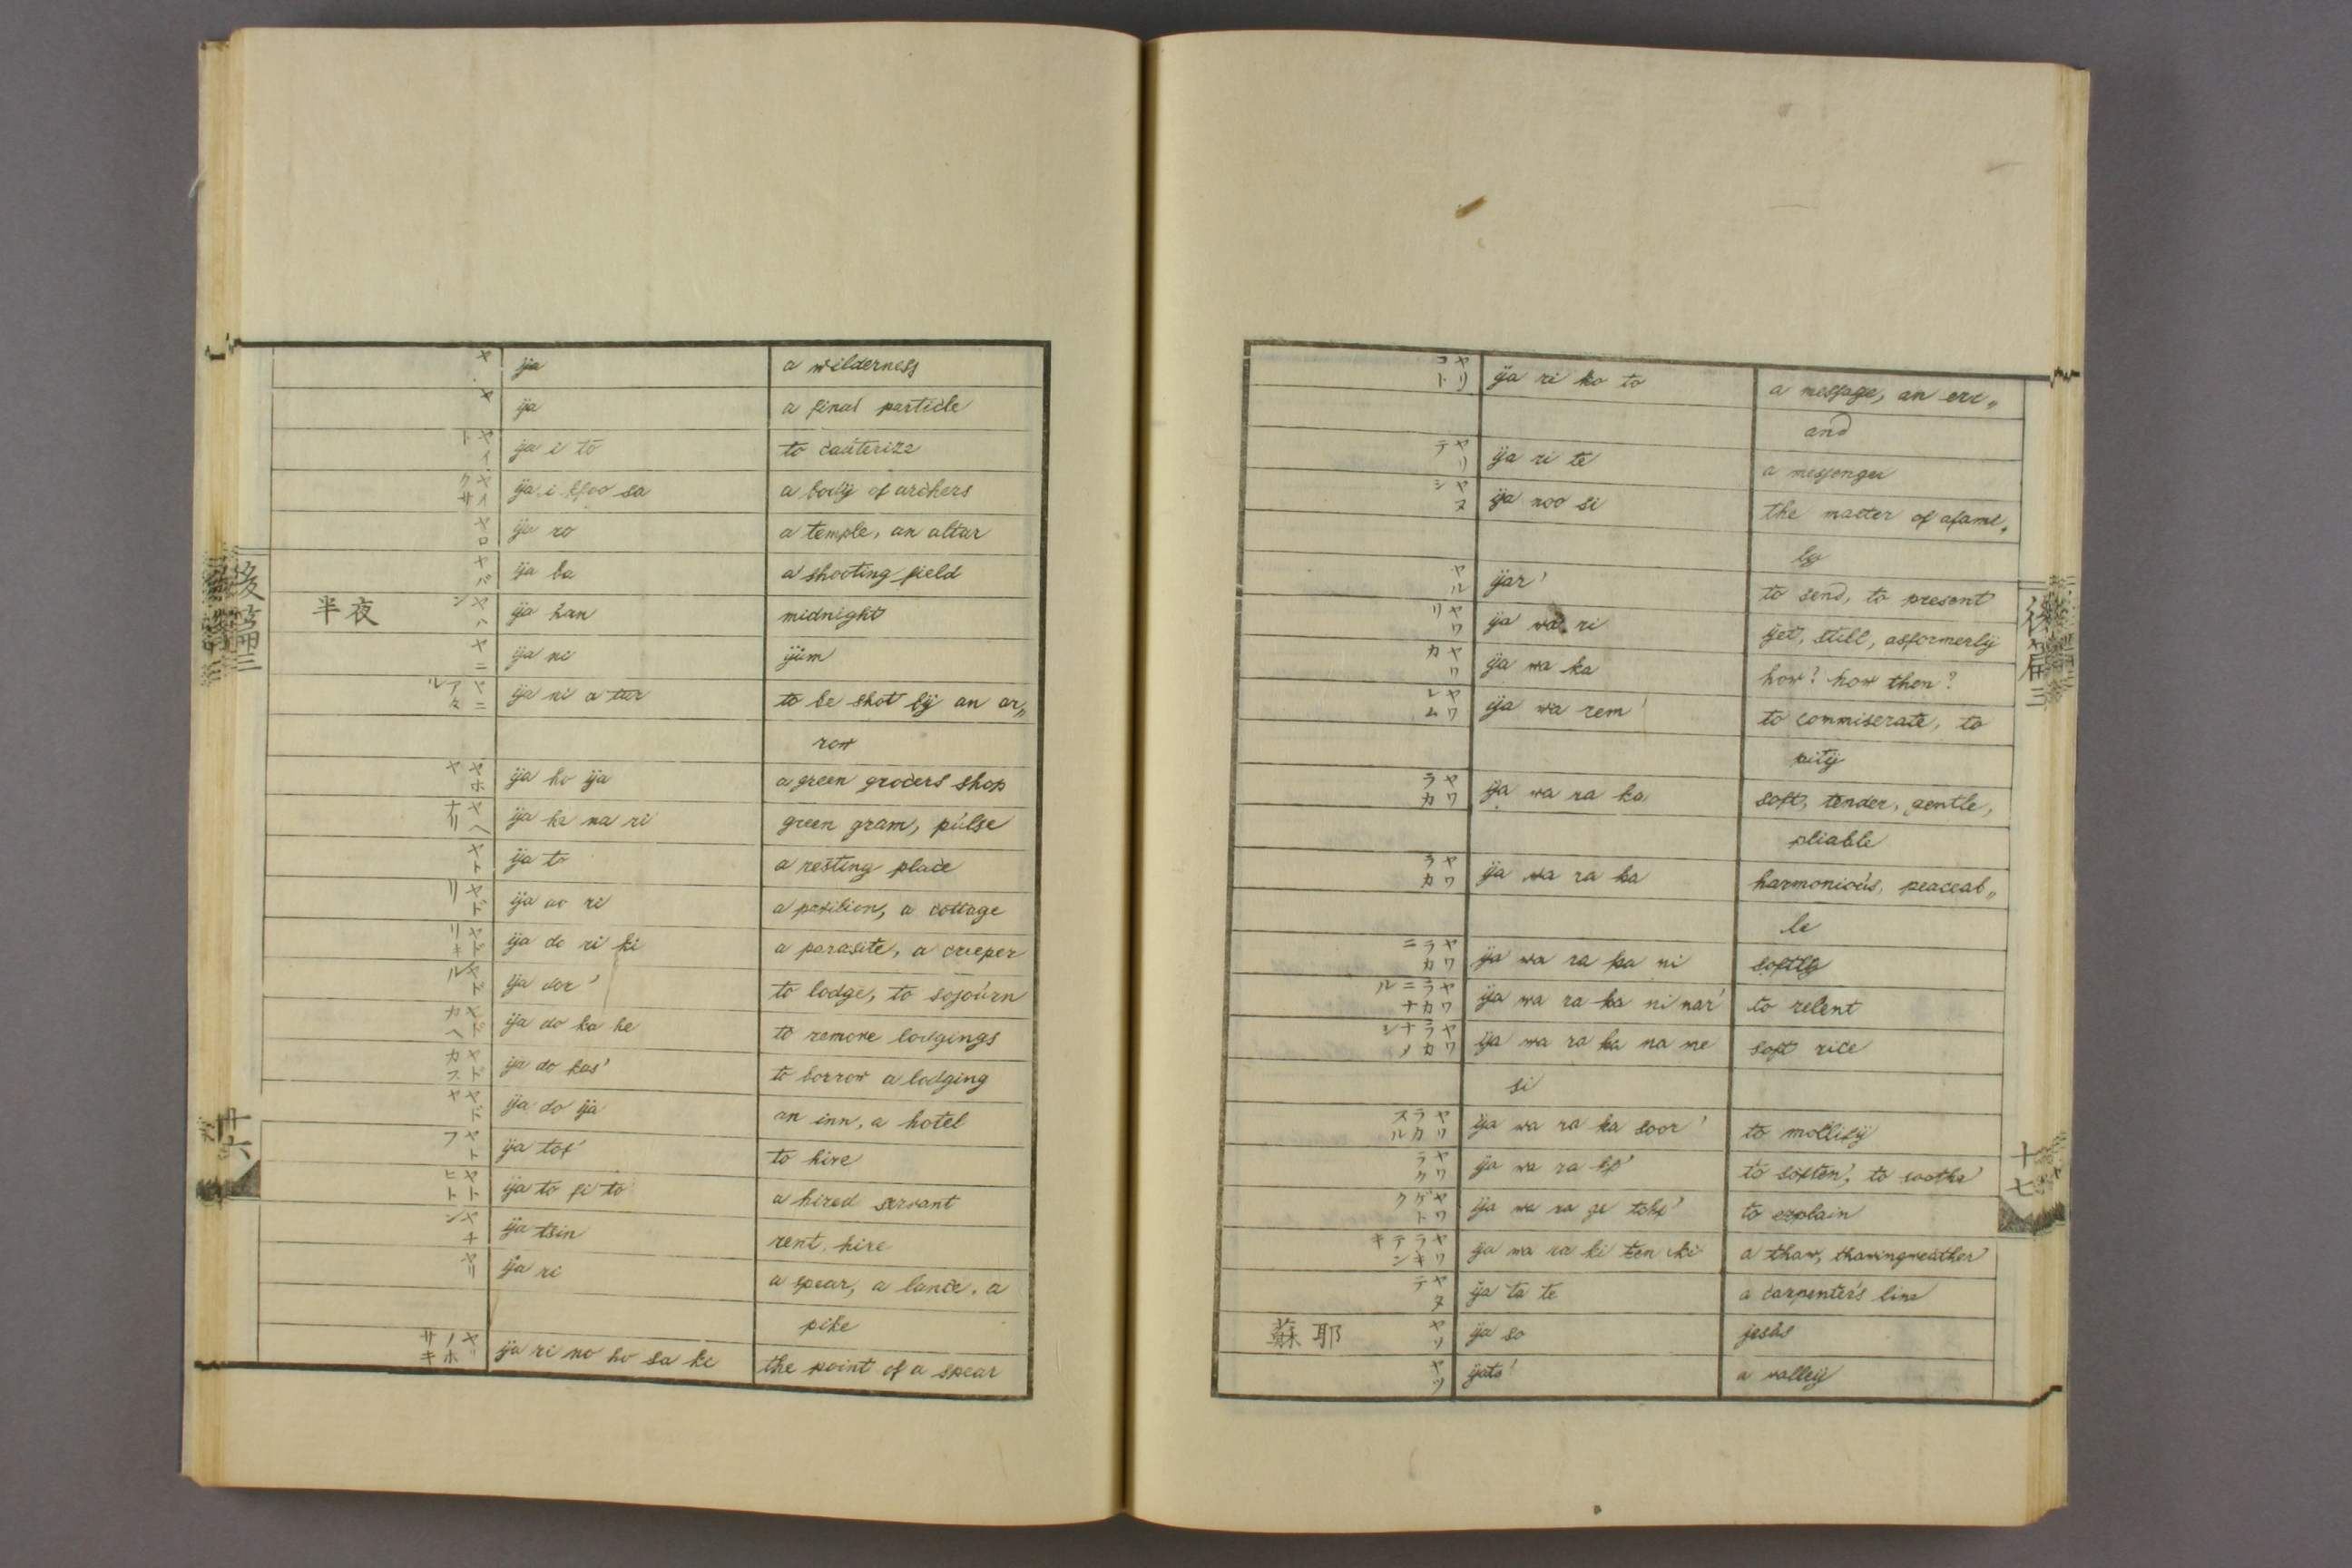 ヤ ija a wilderness
ヤ ija a final particle
ヤイト ija i to to cauterize
ヤイクサ ija i sa a body of archers
ヤロ ija ro a temple, an altar
ヤバ ija ba a shooting field
夜半 ヤハン ija han midnight
ヤニ ija ni
ヤニアタル ija ni a tar to be shot by an ar„
row
ヤホヤ ija ho ija a green grocers shop
ヤヘナリ ija he na ri green gram, pulse
ヤト ija to a resting place
ヤドリ ija do ri a pavilion, a cottage
ヤドリキ ija do ri ki a parasite, a creeper
ヤドル ija dor' to lodge, to sojourn
ヤドカヘ ija do ka he to remove lodgings
ヤドカス ija do kas' to borrow a lodging
ヤドヤ ija do ija an inn, a hotel
ヤトフ ija tof' to hire
ヤトヒト ija to fi to a hired servant
ヤチン ija tsin rent, hire
ヤリ ija ri a spear, a lance, a
pike
ヤリノホサキ ija ri no ho sa ki the point of a spear
後篇三
十六
ヤリコト ija ri ko to a message, an err„
and
ヤリテ ija ri te a messenger
ヤヌシ ija noo si the master of a famí„
ly
ヤル ijar' to send, to present
ヤワリ ija wa ri ijet, still, as formerlij
ヤワカ ija wa ka how? how then?
ヤワレム ija wa rem' to commiserate, to
pitij
ヤワラカ ija wa ra ka soft, tender, gentle,
pliable
ヤワラカ ija wa ra ka harmonious, peaceab„
le
ヤワラカニ ija wa ra ka ni softly
ヤワラカニナル ija wa ra ka ni nar' to relent
ヤワラカナメシ ija wa ra ka na me soft rice
si
ヤワラカスル ija wa ra ka soor' to mollifij
ヤワラク ija wa ra to soften, to soothe
ija wa ra ge to explain
ヤワラキテンキ ija wa ra ki ten ki a thaw, thawing weather
ヤタテ ija ta te a carpenter's line
耶蘇 ヤソ ija so jesus
ヤツ ijats' a valleij
後篇三
ヤ
十七